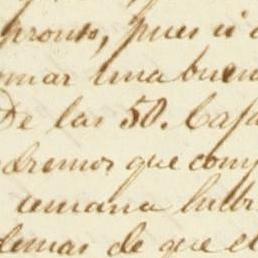 pronto, pues si a
omar una buen
De las 50. Caja
dremos que comp
semana hubi
demas de que el